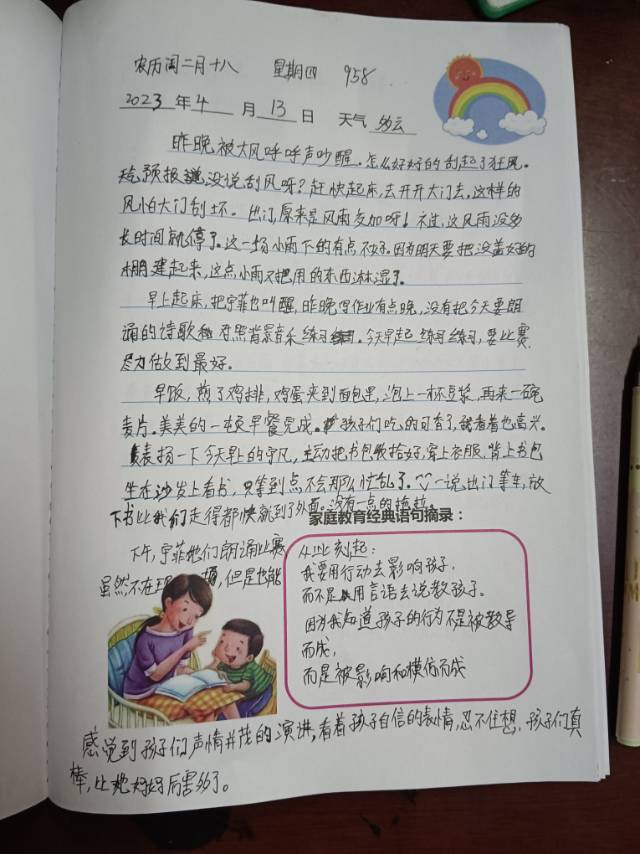 农历闰二月十八 星期四 958
2023年4月13日 天气 多云
昨晚被大风呼呼声吵醒。怎么好好的刮起了狂风。
预报没说刮风呀?赶快起床,去开开大门去,这样的
风怕大门刮坏。出门,原来是风雨交加呀!不过,这风雨没多
长时间就停了。这一场小雨下的有点不好。因为明天要把没盖好的
棚建起来,这点小雨又把用的东西淋湿了。
早上起床,把宇菲也叫醒,昨晚写作业有点晚,没有把今天要朗
诵的诗歌和背景音乐练习。今天早起练习练习,要比赛
尽力做到最好。
早饭,煎了鸡排,鸡蛋夹到面包里,泡上一杯豆浆,再来一碗
麦片。美美的一顿早餐完成。孩子们吃的可香了,我看着也高兴。
表扬一下今天早上的宇凡,主动把书包收拾好,穿上衣服,背上书包
坐在沙发上看书,只等到点不会那么忙乱了。一说出门等车,放
下书比我们走得都快就到了外面。没有一点的拖拉
家庭教育经典语句摘录:
下午,宇菲他们朗诵比赛
虽然不在现场,但是也能
从此刻起:
我要用行动去影响孩子,
而不是用言语去说教孩子。
因为我知道孩子的行为不是被教导
而成,
而是被影响和模仿而成
感觉到孩子们声情并茂的演讲,看着孩子自信的表情,忍不住想,孩子们真
棒,比她妈妈厉害多了。